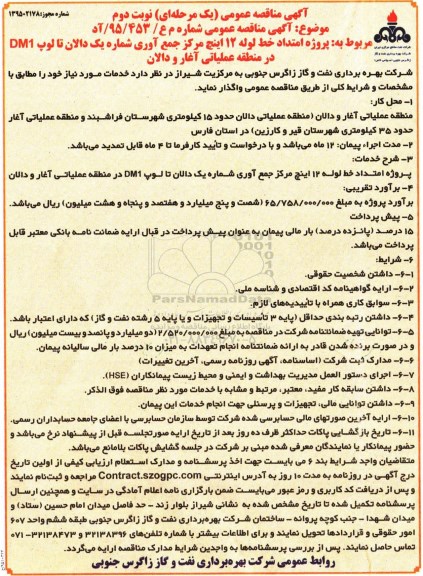 شماره مجوز: ۱۳۹۵۰۲۱۷۸
آگهی مناقصه عمومی (یک مرحله‌ای) نوبت دوم
موضوع: آگهی مناقصه عمومی شماره م ع/ ۹۵/۴۵۳/آد
مربوط به: پروژه امتداد خط لوله ۱۲ اینچ مرکز جمع آوری شماره یک دالان تا لوپ DM1
در منطقه عملیاتی آغار و دالان
شرکت بهره برداری نفت و گاز زاگرس جنوبی به مرکزیت شیراز در نظر دارد خدمات مورد نیاز خود را مطابق با
مشخصات و شرایط کلی از طریق مناقصه عمومی واگذار نماید.
۱- محل کار:
منطقه عملیاتی آغار و دالان (منطقه عملیاتی دالان حدود ۱۵ کیلومتری شهرستان فراشبند و منطقه عملیاتی آغار
حدود ۳۵ کیلومتری شهرستان قیر و کارزین) در استان فارس
۲- مدت اجراء پیمان: ۱۲ ماه می‌باشد و با درخواست و تأیید کارفرما تا ۴ ماه قابل تمدید می‌باشد.
۳- شرح خدمات:
پروژه امتداد خط لوله ۱۲ اینچ مرکز جمع آوری شماره یک دالان تا لوپ DM1 در منطقه عملیاتی آغار و دالان
۴- برآورد تقریبی:
برآورد پروژه به مبلغ ۶۵/۷۵۸/۰۰۰/۰۰۰ (شصت و پنج میلیارد و هفتصد و پنجاه و هشت میلیون) ریال می‌باشد.
۵- پیش پرداخت:
۱۵ درصد (پانزده درصد) بار مالی پیمان به عنوان پیش پرداخت در قبال ارایه ضمانت نامه بانکی معتبر قابل
پرداخت می‌باشد.
۶- شرایط:
۶-۱- داشتن شخصیت حقوقی.
۶-۲- ارایه گواهینامه کد اقتصادی و شناسه ملی.
۶-۳- سوابق کاری همراه با تأییدیه‌های لازم.
۶-۴- داشتن رتبه بندی حداقل (پایه ۳ تأسیسات و تجهیزات و یا پایه ۵ رشته نفت و گاز) که دارای اعتبار باشد.
۶-۵- توانایی تهیه ضمانتنامه شرکت در مناقصه به مبلغ ۲/۵۲۰/۰۰۰/۰۰۰ (دو میلیارد و پانصد و بیست میلیون) ریال
و در صورت برنده شدن قادر به ارائه ضمانتنامه انجام تعهدات به میزان ۱۰ درصد بار مالی سالیانه پیمان.
۶-۶- مدارک ثبت شرکت (اساسنامه، آگهی روزنامه رسمی، آخرین تغییرات)
۶-۷- اجرای دستور العمل مدیریت بهداشت و ایمنی و محیط زیست پیمانکاران (HSE).
۶-۸- داشتن سابقه کار مفید، معتبر، مرتبط و مشابه با خدمات مورد نظر مناقصه فوق الذکر.
۶-۹- داشتن توانایی مالی، تجهیزات و پرسنلی جهت انجام خدمات این پیمان.
۶-۱۰- ارایه آخرین صورتهای مالی حسابرسی شده شرکت توسط سازمان حسابرسی یا اعضای جامعه حسابداران رسمی.
۶-۱۱- تاریخ بازگشایی پاکات حداکثر ظرف ده روز بعد از تاریخ ارایه صورتجلسه قبل از پیشنهاد نرخ می‌باشد و
حضور پیمانکار یا نمایندگان معرفی شده مبنی بر شرکت در جلسه گشایش پاکات بلامانع می‌باشد.
متقاضیان واجد شرایط بند ۶ می بایست جهت اخذ پرسشنامه و مدارک استعلام ارزیابی کیفی از اولین تاریخ
درج آگهی در روزنامه به مدت ۱۰ روز به آدرس اینترنتی Contract.szogpc.com مراجعه و ثبت‌نام نمایند
و پس از دریافت کد کاربری و رمز عبور می‌بایست ضمن بارگزاری نامه اعلام آمادگی در سایت و همچنین ارسال
پرسشنامه تکمیل شده تا تاریخ مشخص شده به نشانی شیراز بلوار زند - حد فاصل میدان امام حسین (ستاد) و
میدان شهدا - جنب کوچه پروانه - ساختمان شرکت بهره‌برداری نفت و گاز زاگرس جنوبی طبقه ششم واحد ۶۰۷
امور حقوقی و قراردادها تحویل نمایند و برای اطلاعات بیشتر با شماره تلفن‌های ۳۲۱۳۸۳۹۶ و ۳۲۱۳۸۴۷۳-۰۷۱
تماس حاصل نمایند. پس از بررسی پرسشنامه‌ها به واجدین شرایط مدارک مناقصه ارایه می‌گردد.
روابط عمومی شرکت بهره‌برداری نفت و گاز زاگرس جنوبی